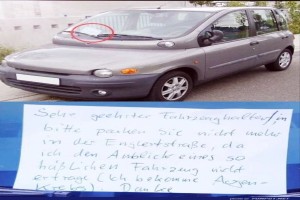 Sehr geehrter Fahrzeughalter/in
bitte parken Sie nicht mehr
in der Englertstraße, da
ich den Anblick eines so
häßlichen Fahrzeug nicht
ertrage (Ich bekomme Augen-
Krebs). Danke